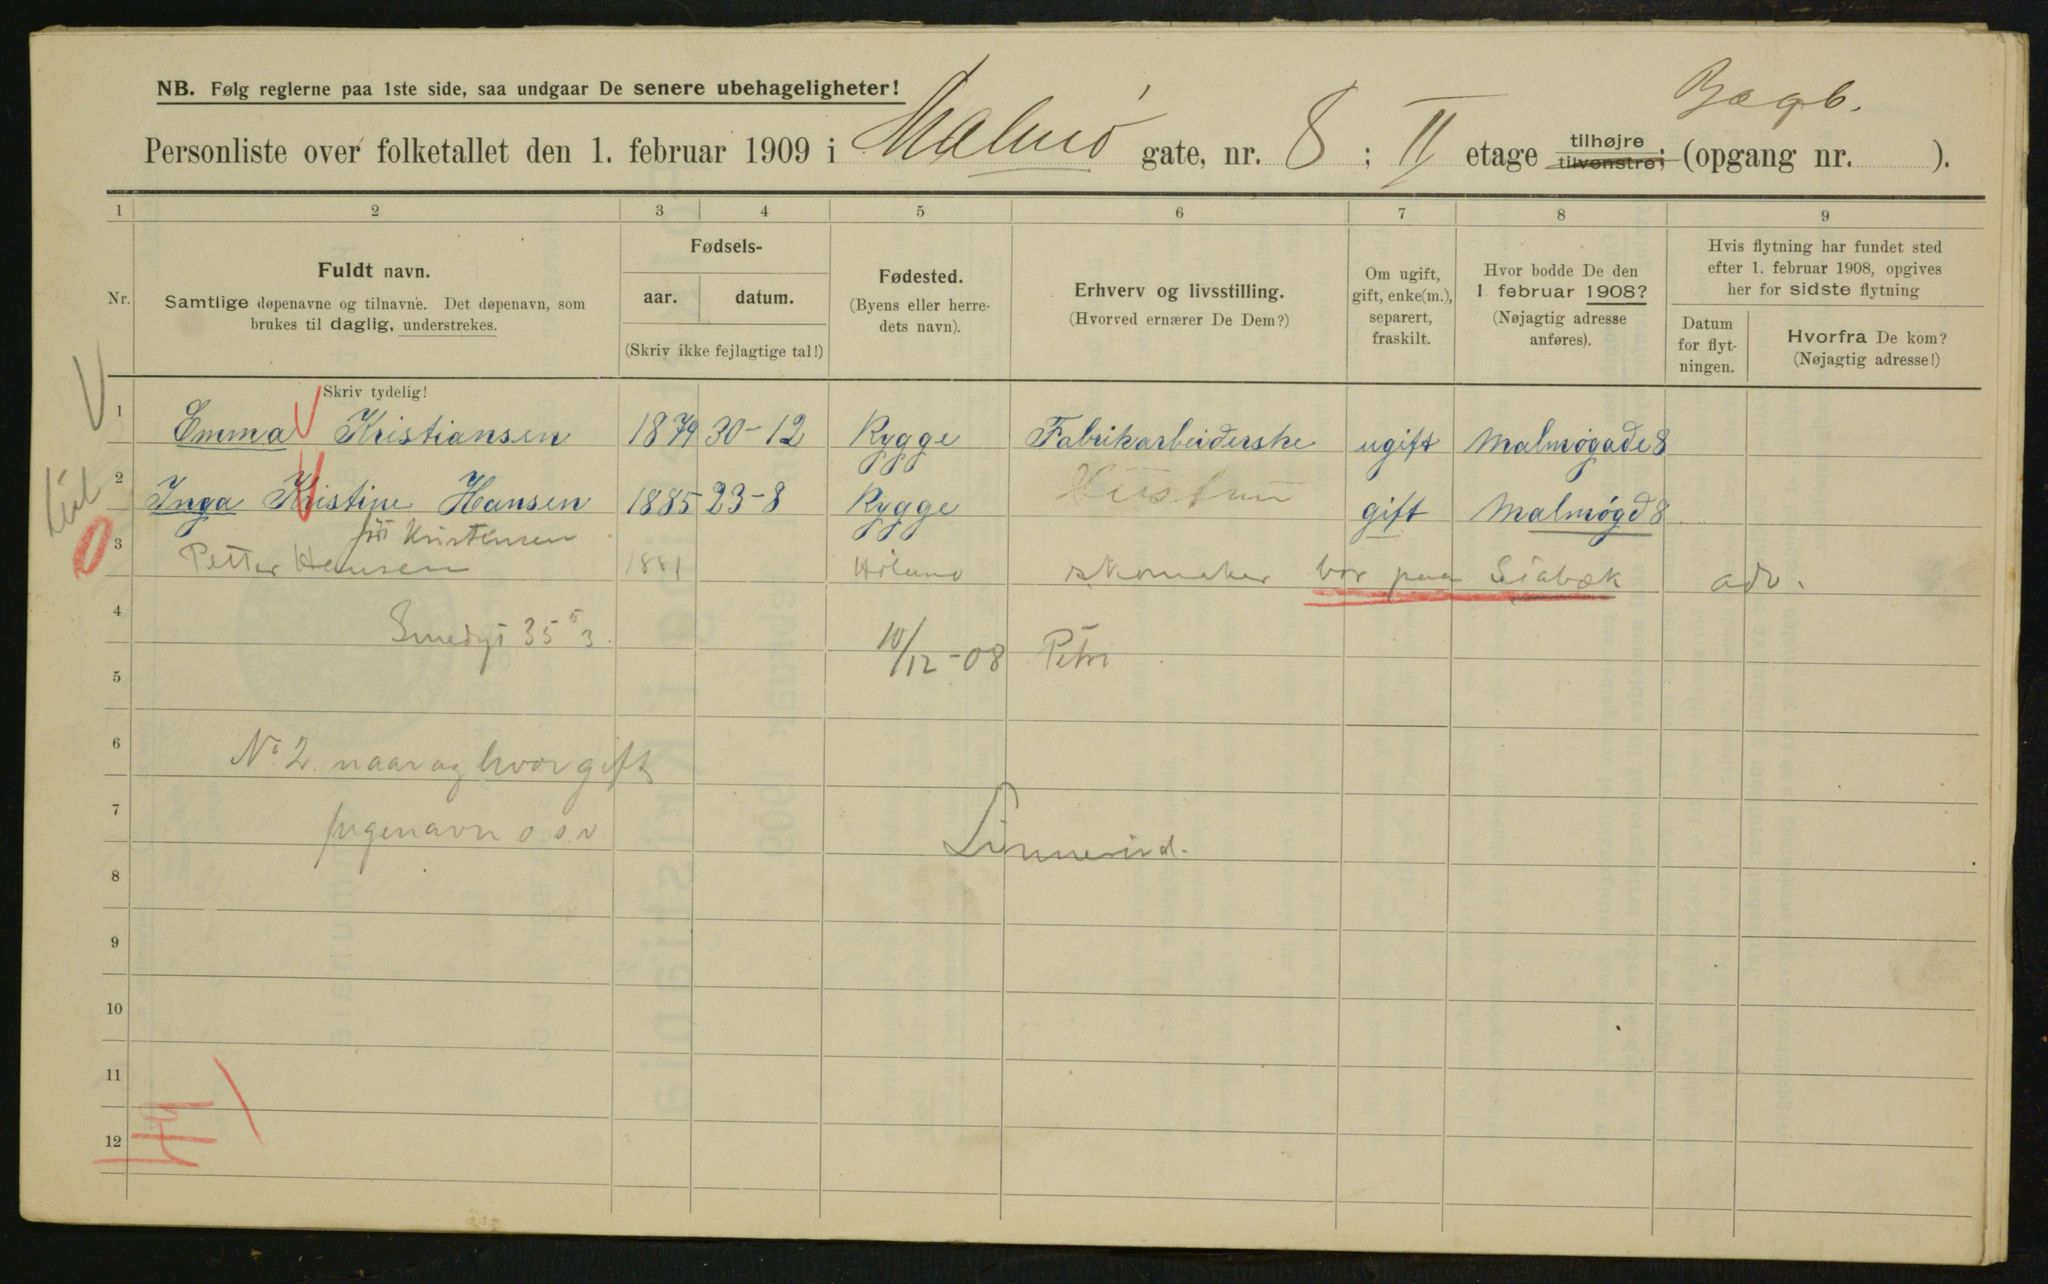 NB. Følg reglerne paa 1ste side, saa undgaar De senere ubehageligheter!
Bagb.
Personliste over folketallet den 1. februar 1909 i Malmø gate, nr. 8 ; II etage tilhøjre tilvenstre; (opgang nr. ).
1 2 3 4 5 6 7 8 9
Nr.
Fuldt navn.
Samtlige døpenavne og tilnavne. Det døpenavn, som
brukes til daglig, understrekes.
Fødsels-
aar. datum.
(Skriv ikke fejlagtige tal!)
Fødested.
(Byens eller herre-
dets navn).
Erhverv og livsstilling.
(Hvorved ernærer De Dem?)
Om ugift,
gift, enke(m.),
separert,
fraskilt.
Hvor bodde De den
1 februar 1908?
(Nøjagtig adresse
anføres).
Hvis flytning har fundet sted
efter 1. februar 1908, opgives
her for sidste flytning
Datum
for flyt-
ningen.
Hvorfra De kom?
(Nøjagtig adresse!)
Skriv tydelig!
1 Emma Kristiansen 1879 30-12 Rygge Fabrikarbeiderske ugift Malmøgade 8
2 Inga Kristine Hansen 1885 23-8 Rygge Hustru gift Malmøgd 8
født Kristensen
3 Petter Hansen 1881 Høland skomaker bor paa adr.
4 35 3
10/12-08 Petri
5
6 No. 2 naar og hvor gift
7 pigenavn o s v
8
9
10
11
12